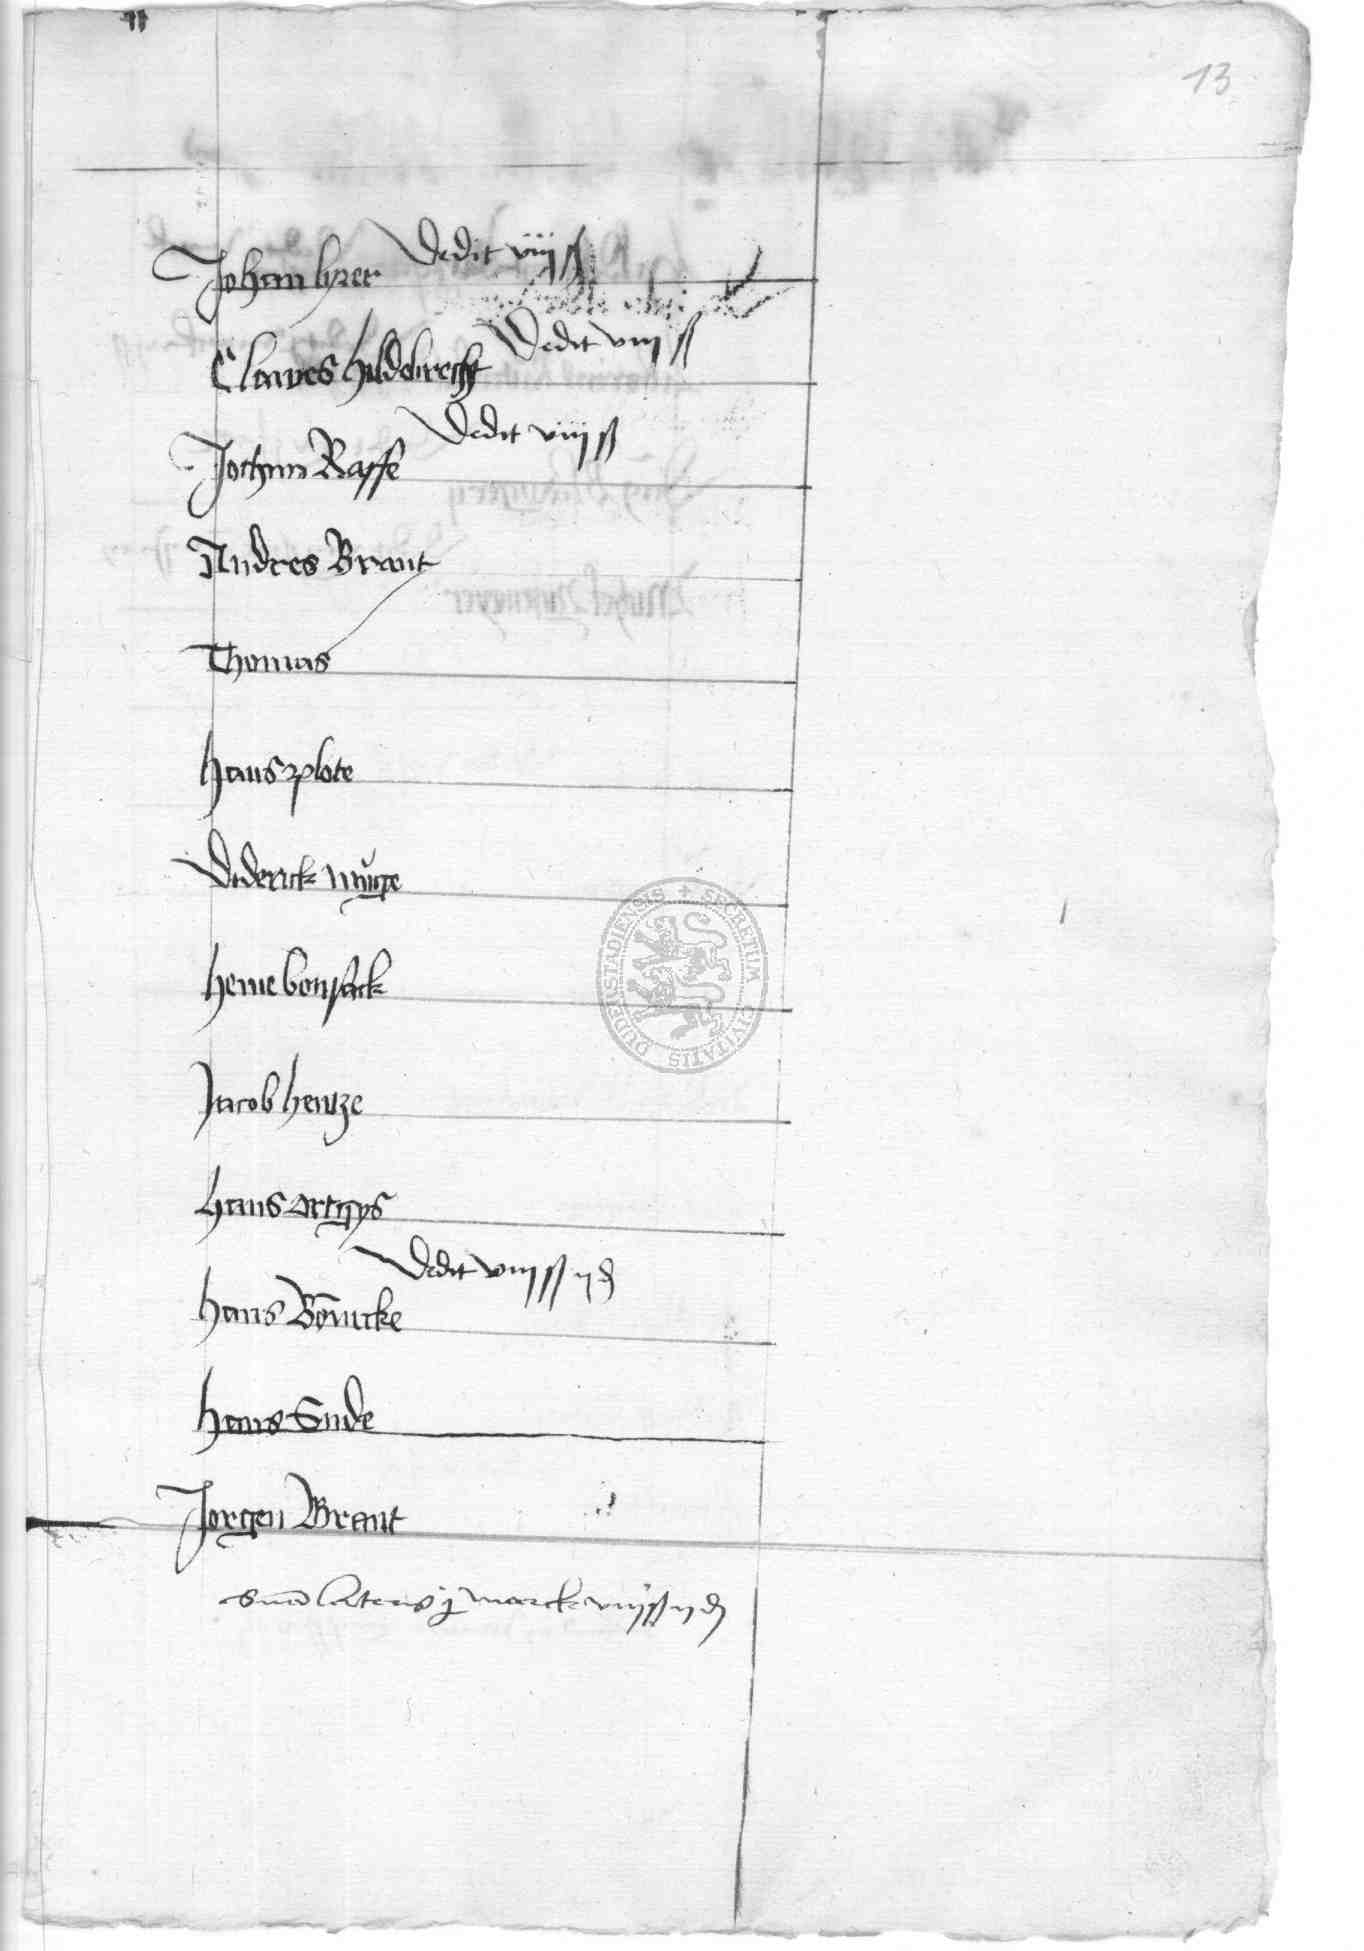 13
Johan lyzer dedit viiij ß
Clawes hildebrecht dedit viiij ß
Jochym Raffe dedit viiij ß
Andres Brant
Thomas
hans plote
diderick
heine bonsack
Jacob hentze
hans artzys
hans Bōnicke dedit viiij ß ij ₰
hans Ende
Jorgen Brant
Suma lateris j marck viiij ß ij ₰
SECRETUM CIVITATIS DUDERSTADIENSIS